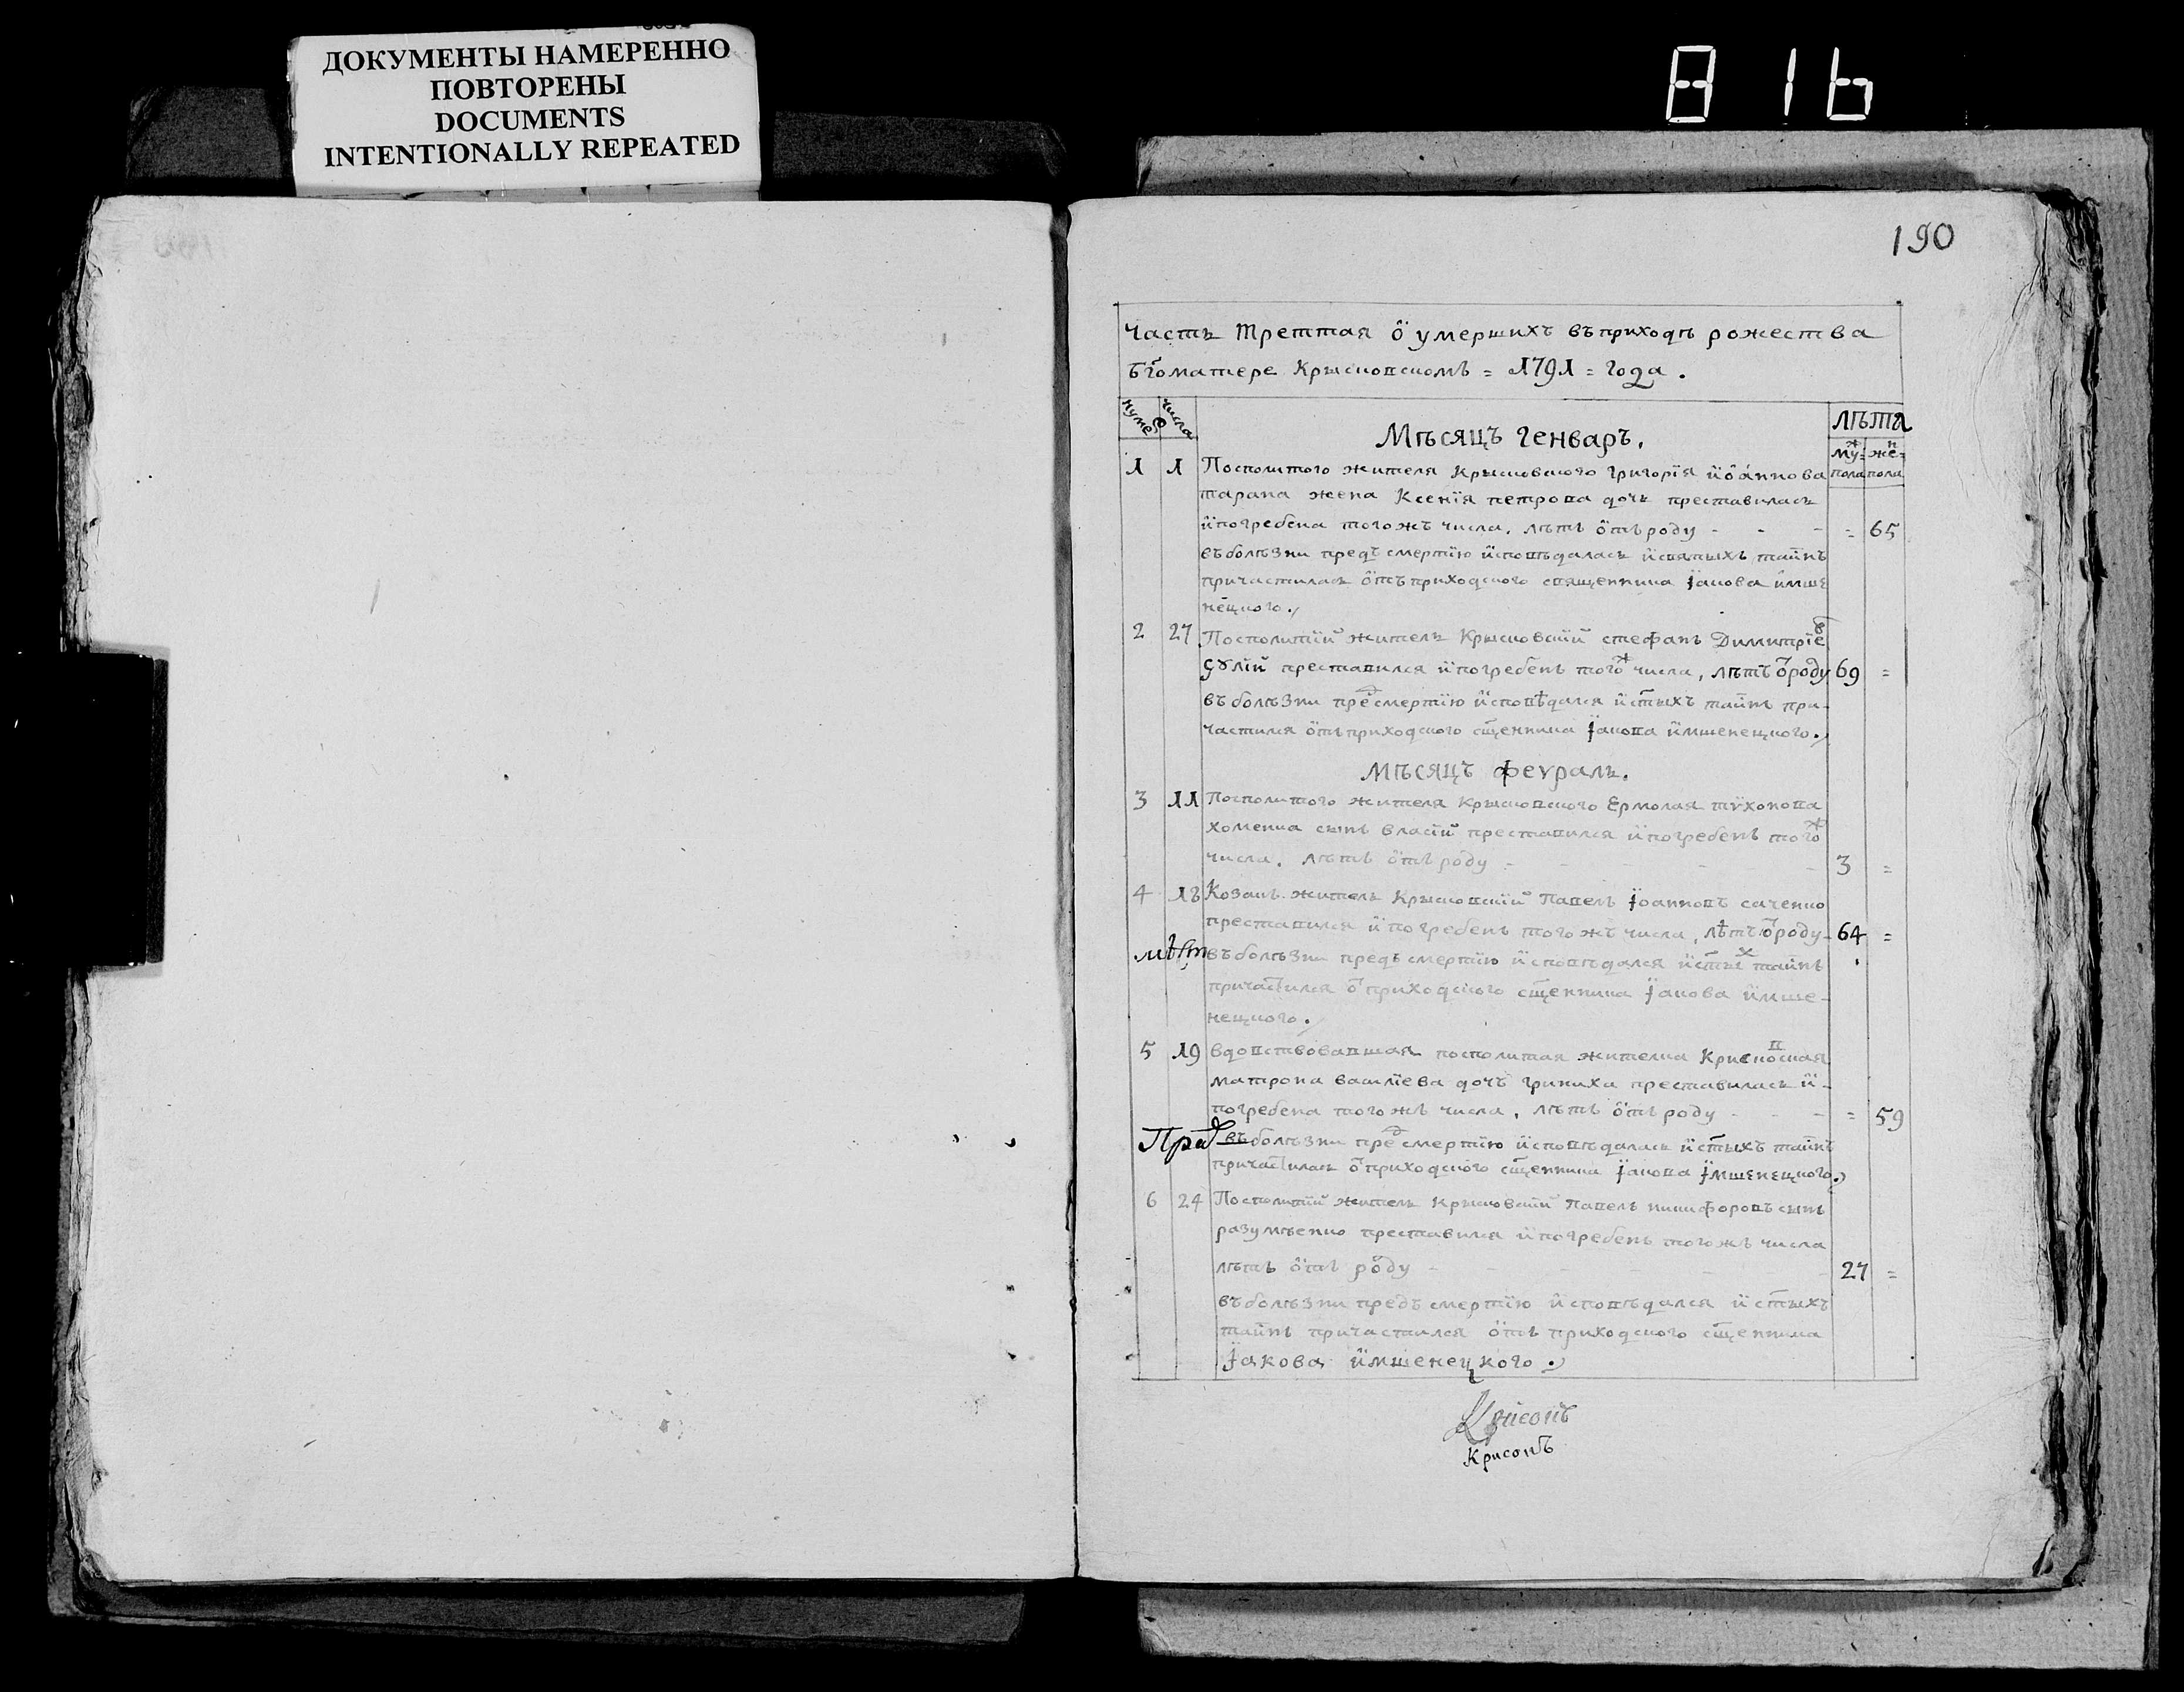 ДОКУМЕНТЫ НАМЕРЕННО
ПОВТОРЕНЫ
DOCUMENTS
INTENTIONALLY REPEATED
816
190
Часть Третая ѽ умершихъ въ приходѣ рожества
бг҃оматере Крысковскомъ = 1791 = года.
нумеръ числа лѣта
Мѣсяцъ Генваръ.
муж= жен=
пола пола
1 1 Посполитого жителя Крысковского Григорїя їѡаннова
тарана жена Ксенїя петрова дочь преставилась
и погребена тогожъ числа, лѣтъ ѿтъ роду - - - = 65
въ болѣзни предъ смертїю исповѣдалась и святыхъ тайнъ
причастилась ѿтъ приходского священника їакова имше
нецкого.
2 27 Посполитїй житель Крысковскїй стефанъ Димитрїев
Сꙋлїй преставился и погребенъ тогож числа, лѣтъ ѿ роду 69 =
въ болѣзни пред смертїю исповѣдался и ст҃ыхъ тайнъ при-
частился ѿтъ приходского сщ҃енника їакова имшенецкого.
Мѣсяцъ феѵраль.
3 11 Посполитого жителя Крысковского Ермолая тѵхонова
хоменка сынъ власїй преставился и погребенъ тогож
числа, лѣтъ ѿтъ роду - - - - - 3 =
4 18 Козакъ житель Крысковскїй Павелъ їоанновъ саченко
преставился и погребенъ тогожъ числа, лѣтъ ѿ роду - 64 =
мѣст въ болѣзни предъ смертїю исповѣдался и ст҃ых тайнъ
причастился ѿ приходского сщ҃енника їакова имше-
нецкого.
5 19 вдовствовавшая посполитая жителка Крисковская
матрона василїева дочъ гриниха преставилась и-
погребена тогожъ числа, лѣтъ ѿтъ роду - - - = 59
Прав въ болѣзни пред смертїю исповѣдалась и ст҃ыхъ тайнъ
причастилась ѿ приходского сщ҃енника їакова їмшенецкого.
6 24 Посполитїй житель Крысковскїй Павелъ никифоровъ сынъ
разумѣенко преставился и погребенъ тогожъ числа
лѣтъ ѿтъ роду - - - - - 27 =
въ болѣзни предъ смертїю исповѣдался и ст҃ыхъ
тайнъ причастился ѿтъ приходского сщ҃енника
їакова имшенецкого.